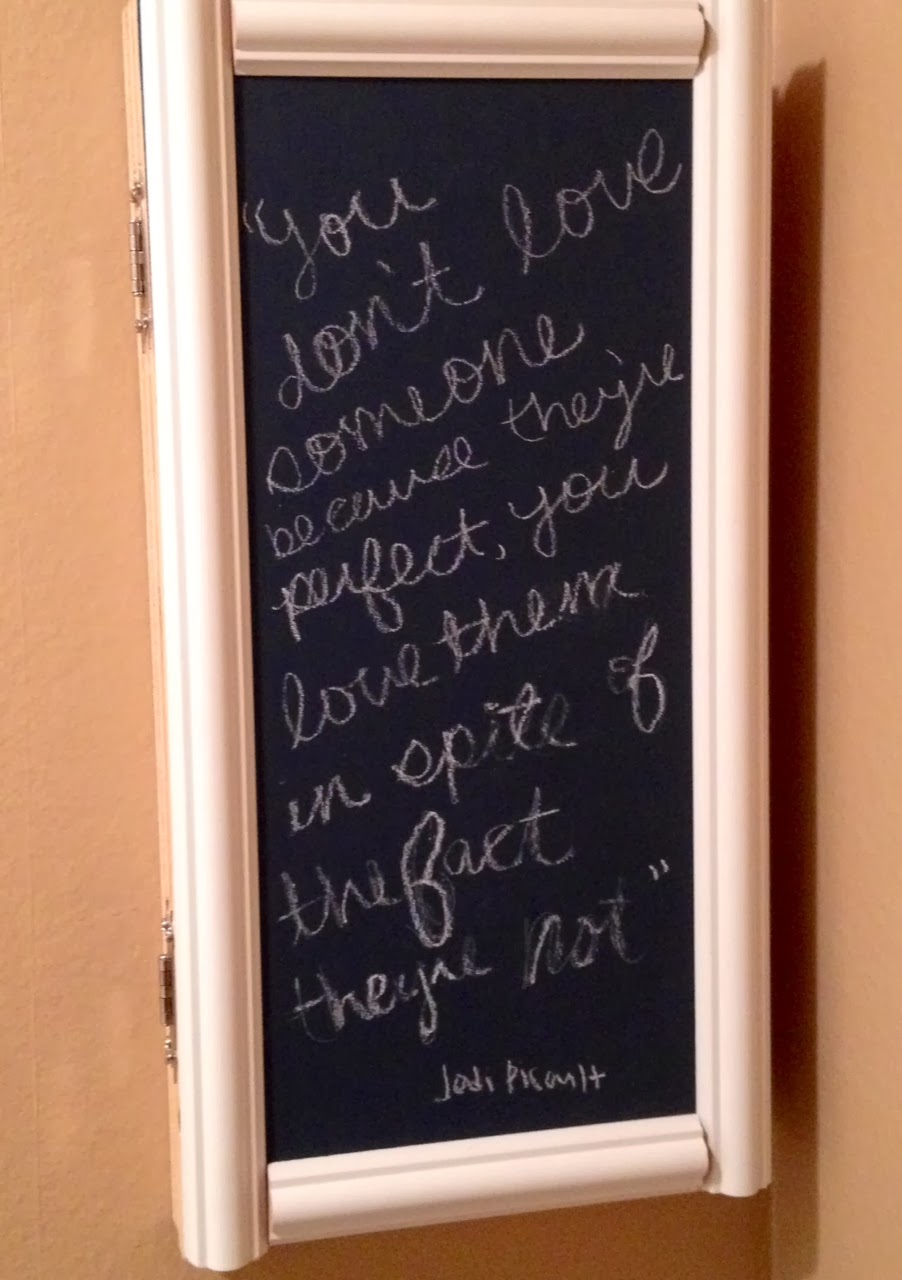 "you
don't love
someone
because they're
perfect, you
love them
in spite of
the fact
they're not"
Jodi Picoult